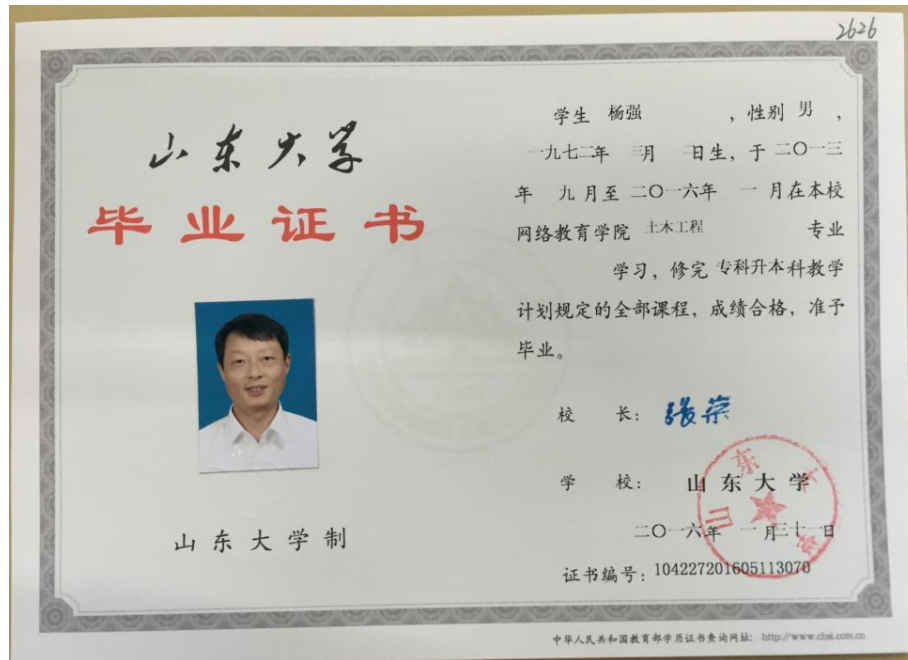 2626
山东大学
毕业证书
山东大学制
学生 杨强 ，性别 男 ，
一九七二年 三月 一日生，于 二〇一三
年 九 月至 二〇一六年 一 月在本校
网络教育学院 土木工程 专业
学习，修完 专科升本科教学
计划规定的全部课程，成绩合格，准予
毕业。
校 长：
学 校： 山东大学
二〇一六年 一 月三十一日
证书编号：104227201605113070
中华人民共和国教育部学历证书查询网址： http://www.chsi.com.cn